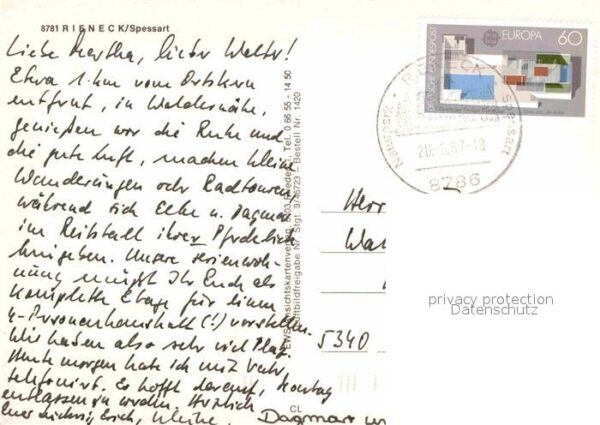 8781 RIENECK/Spessart
Liebe Martha, lieber Walter!
Etwa 1 km vom Ortskern
entfernt, in Waldesnähe,
genießen wir die Ruhe und
die gute Luft, machen kleine
Wanderungen oder Radtouren,
während sich Elke u. Dagmar
im Reitstall ihrer Pferdeliebe
hingeben. Unsere Ferienwoh-
nung müßt Ihr Euch als
komplette Etage für einen
4-Personenhaushalt (!) vorstellen.
Wir haben also sehr viel Platz.
Heute morgen habe ich mit Vater
telefoniert. Er hofft darauf, Montag
entlassen zu werden. Herzlich
Euer Erich,
Dagmar
CL
Bestell Nr. 1420
Tel. 0 66 55 - 14 50
DEUTSCHE BUNDESPOST
EUROPA 60
Naturpark Spessart
87-18
8786
Herr
5340
privacy protection
Datenschutz